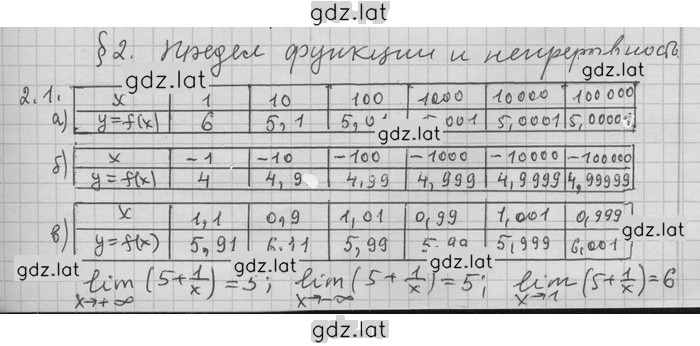 gdz.lat
§ 2. Предел функции и непрерывность
gdz.lat gdz.lat
2.1. x 1 10 100 1000 10000 100000
а) y=f(x) 6 5,1 5,01 5,001 5,0001 5,00001
gdz.lat
б) x -1 -10 -100 -1000 -10000 -100000
y=f(x) 4 4,9 4,99 4,999 4,9999 4,99999
gdz.lat gdz.lat
в) x 1,1 0,9 1,01 0,99 1,001 0,999
y=f(x) 5,91 6.11 5,99 5,999 6,001
gdz.lat gdz.lat gdz.lat
lim (5+1/x)=5; lim (5+1/x)=5; lim (5+1/x)=6
x→+∞ x→-∞ x→1
gdz.lat